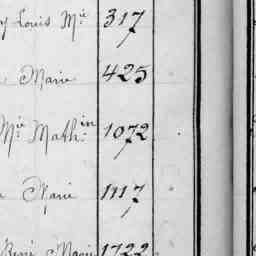 Louis Mie 317
Marie 425
Mie Mathin 1072
Marie 1117
René Marie 1722